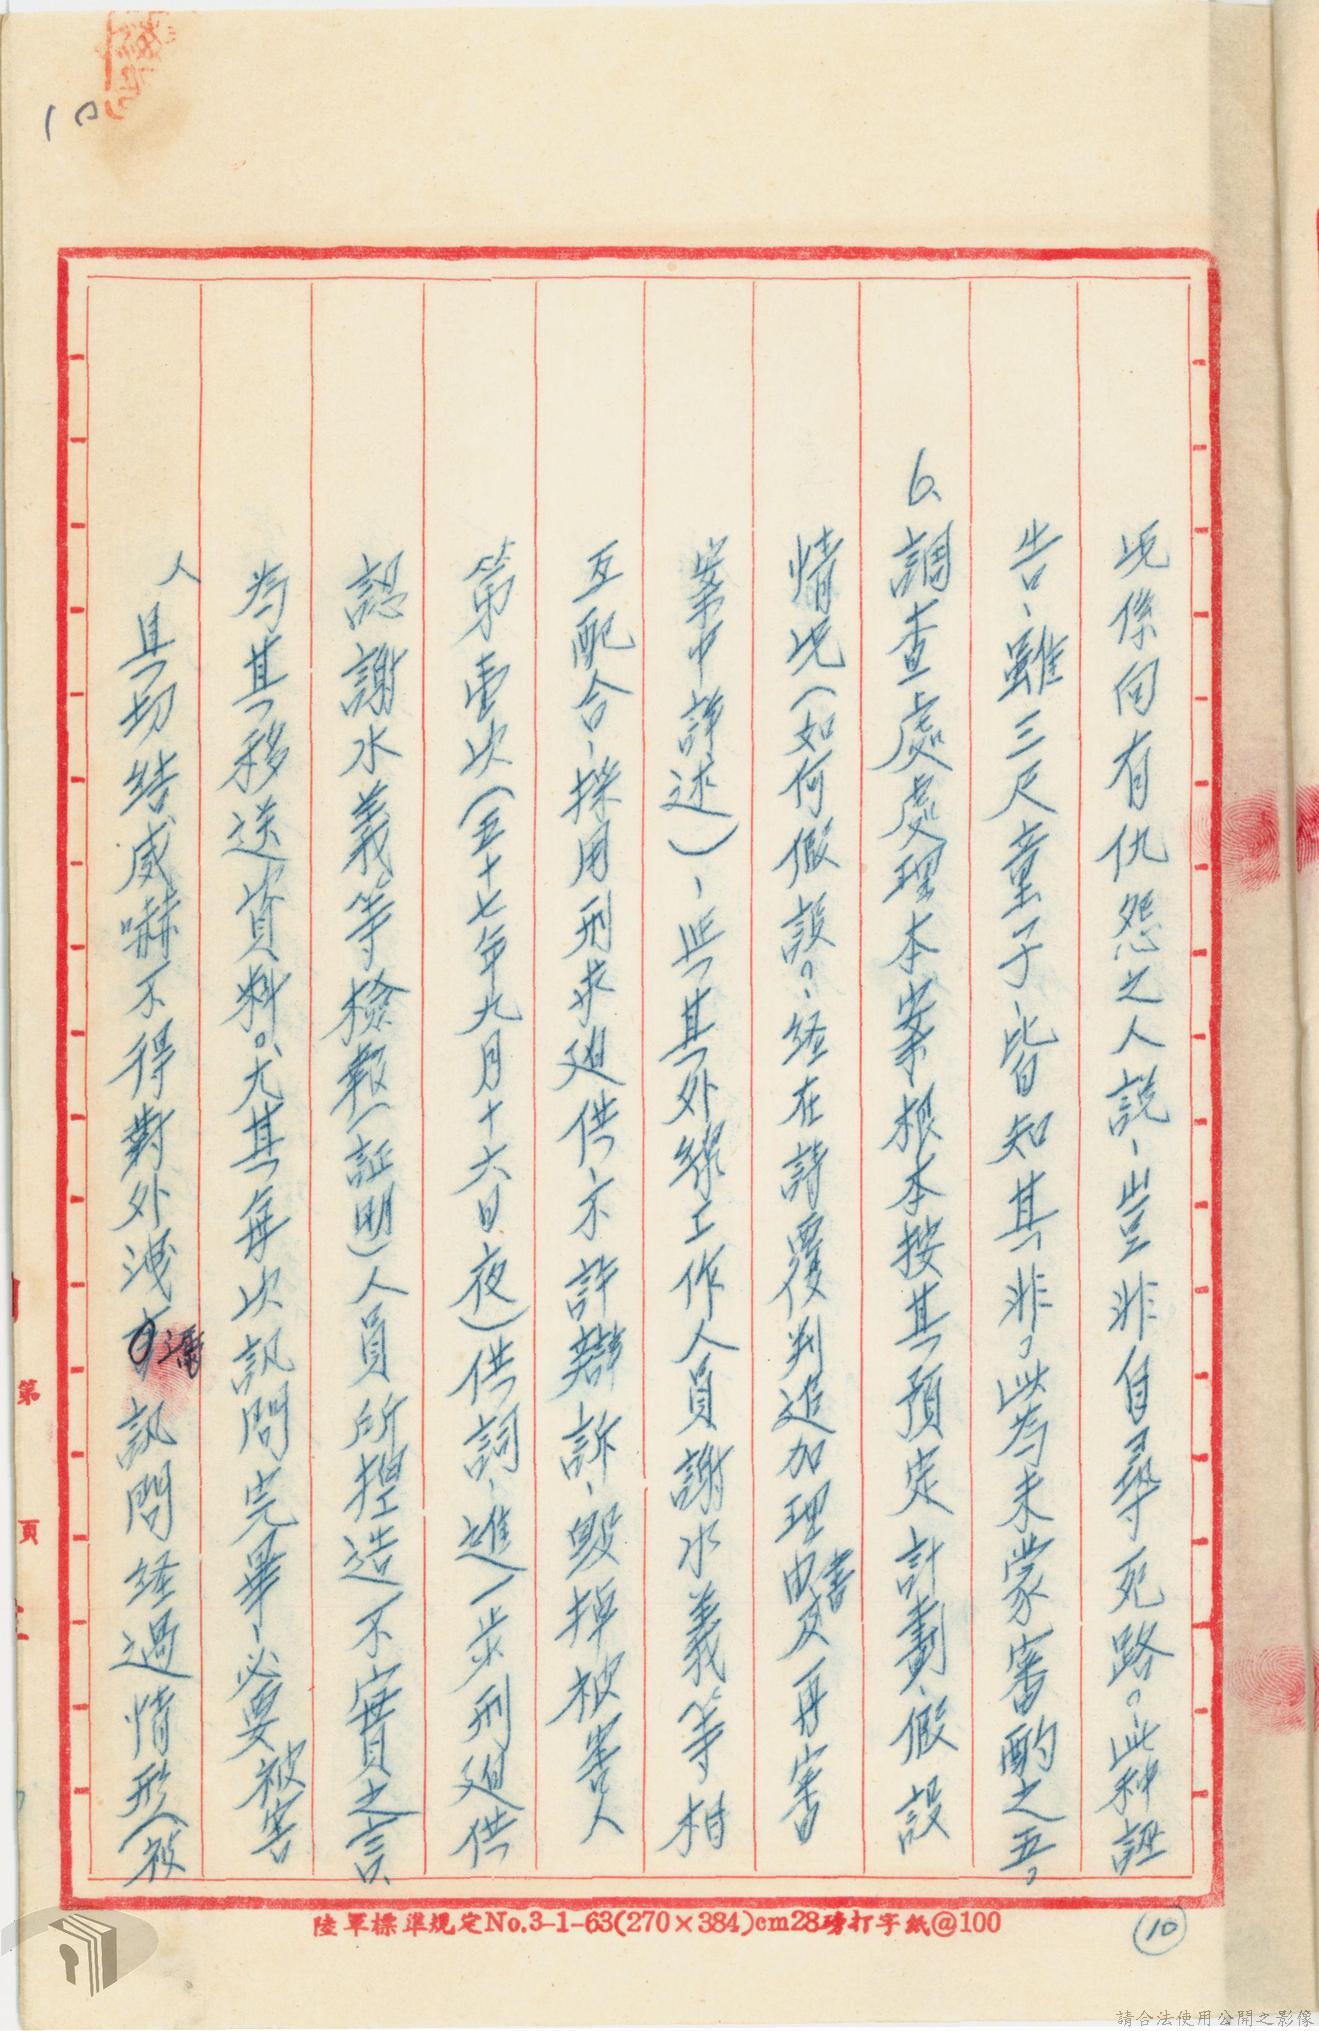 況係向有仇怨之人説、豈非自尋死路。此种誣
告、雖三尺童子、皆知其非。此為未蒙審酌之五。
6、調查處處理本案根本按其預定計劃、假設
情況(如何假設。、経在請覆判追加理由書及再審
案中詳述)、與其外線工作人員謝水義等相
互配合、採用刑求廹供、不許辯訴、毁掉被害人
第壹次(五十七年九月十六日夜)供詞、進一步刑廹供
認謝水義等檢報(証明)人員所揑造不實之言、
為其移送資料。尤其每次訊問完畢、必要被害
人具切結威嚇不得對外洩漏訊問経過情形(被
10
10
第 頁
陸軍標準規定No.3-1-63(270×384)cm28磅打字紙@100
請合法使用公開之影像